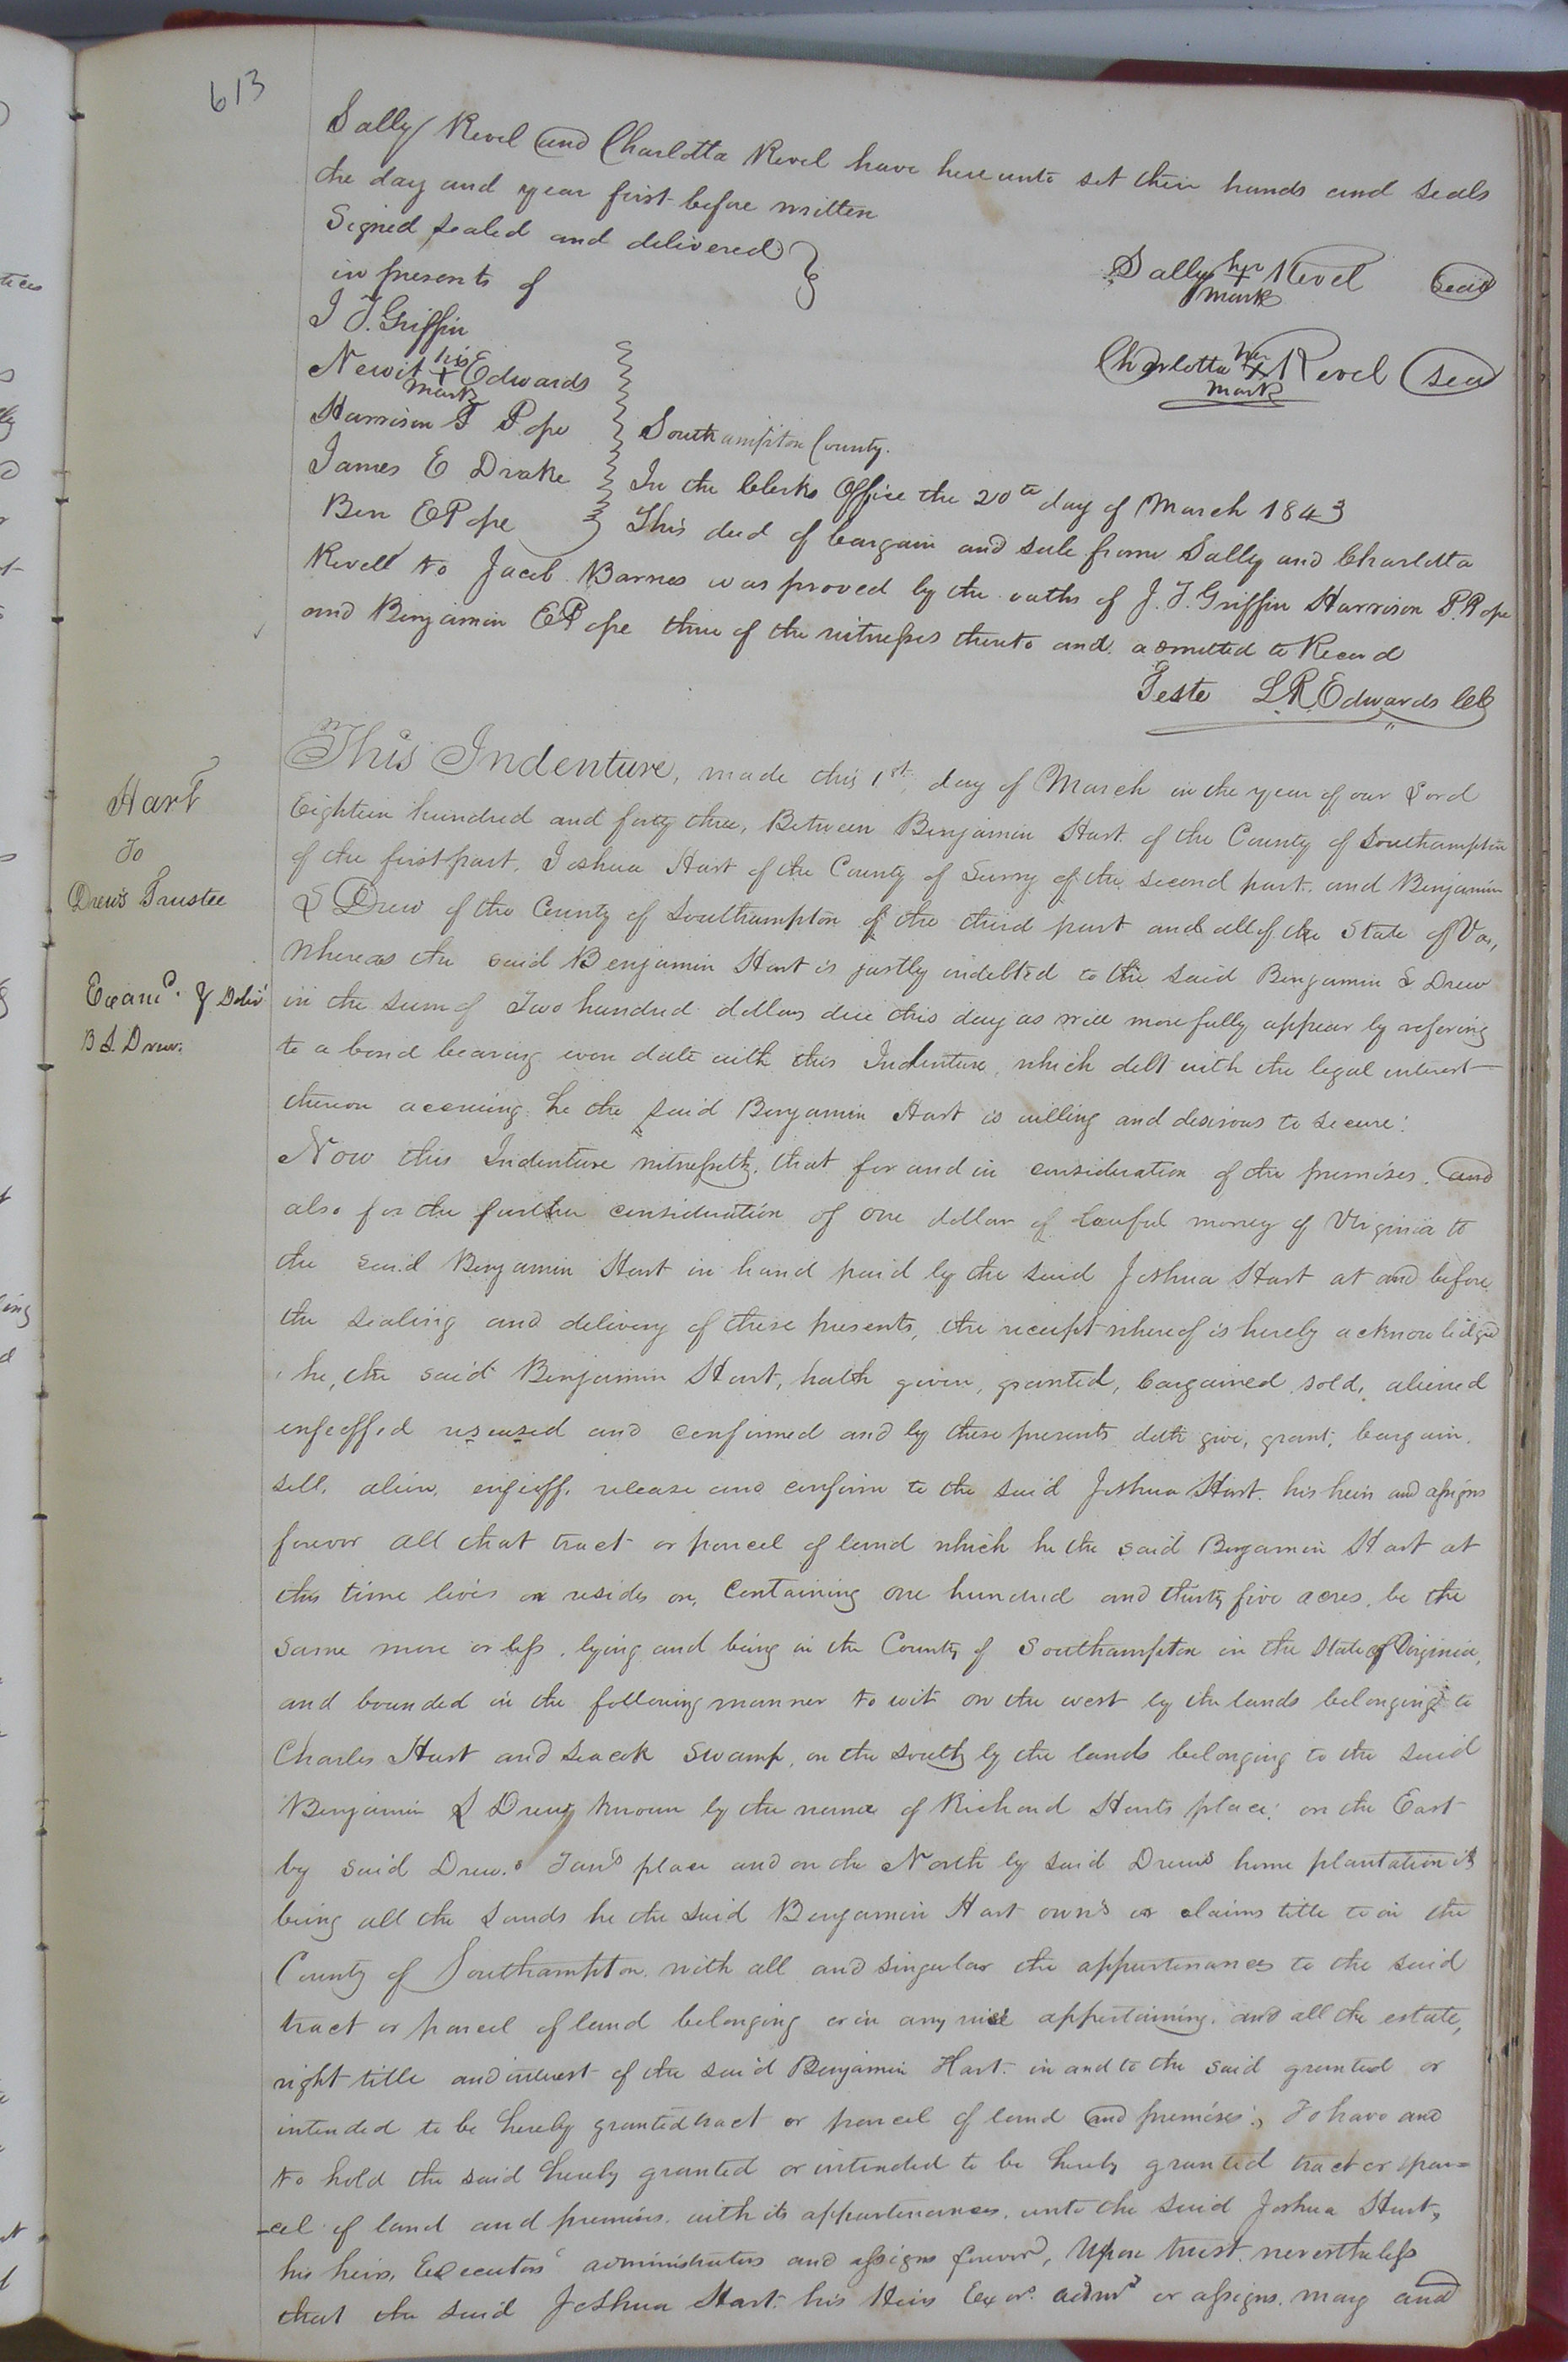 613
Sally Revel and Charlotta Revel have hereunto set their hands and seals
the day and year first before written
Signed sealed and delivered
in presents of
J T. Griffin
Newit his + mark Edwards
Harrison P Pope
James E Drake
Ben E Pope
Sally her + mark Revel seal
Charlotta her + mark Revel seal
Southampton County.
In the Clerks Office the 20th day of March 1843
This deed of bargain and sale from Sally and Charlotta
Revell to Jacob Barnes was proved by the oaths of J. T. Griffin Harrison P. Pope
and Benjamin E Pope three of the witnesses thereto and admitted to Record
Teste L R Edwards CC
Hart
To
Drew's Trustee
Examd. & Delivd
B S. Drew.
This Indenture, made this 1st day of March in the year of our Lord
Eighteen hundred and forty three, Between Benjamin Hart of the County of Southampton
of the first part, Joshua Hart of the County of Surry of the second part and Benjamin
S Drew of the County of Southampton of the third part and all of the State of Va,
Whereas the said Benjamin Hart is justly indebted to the said Benjamin S Drew
in the sum of Two hundred dollars due this day as will more fully appear by refering
to a bond bearing even date with this Indenture, which debt with the legal interest
thereon accruing he the said Benjamin Hart is willing and desirous to secure:
Now this Indenture witnesseth, that for and in consideration of the premises, and
also for the further consideration of one dollar of lawful money of Virginia to
the said Benjamin Hart in hand paid by the said Joshua Hart at and before
the sealing and delivery of these presents, the receipt whereof is hereby acknowledged
he, the said Benjamin Hart, hath given, granted, bargained, sold, aliened
enfeoffed and confirmed and by these presents doth give, grant, bargain,
sell, alien, enfeoff, release and confirm to the said Joshua Hart his heirs and assigns
forever all that tract or parcel of land which he the said Benjamin Hart at
this time lives or resides on, Containing one hundred and thirty five acres, be the
same more or less, lying and being in the County of Southampton in the State of Virginia,
and bounded in the following manner to wit on the west by the lands belonging to
Charles Hart and Seacok Swamp, on the south by the lands belonging to the said
Benjamin S Drew known by the name of Richard Harts place: on the East
by said Drew's place and on the North by said Drew's home plantation it
being all the Lands he the said Benjamin Hart owns or claims title to in the
County of Southampton with all and singular the appurtenances to the said
tract or parcel of land belonging or in any wise appertaining, and all the estate,
right title and interest of the said Benjamin Hart in and to the said granted or
intended to be hereby granted tract or parcel of land and premises, To have and
to hold the said hereby granted or intended to be hereby granted tract or par=
-cel of land and premises with its appurtenances, unto the said Joshua Hart,
his heirs, Executors administrators and assigns forever, Upon trust nevertheless
that the said Joshua Hart his Heirs Exors. admrs or assigns may and